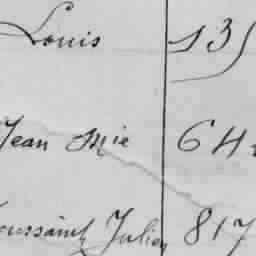 Louis 135
Jean Mie 64
Toussaint Julien 817